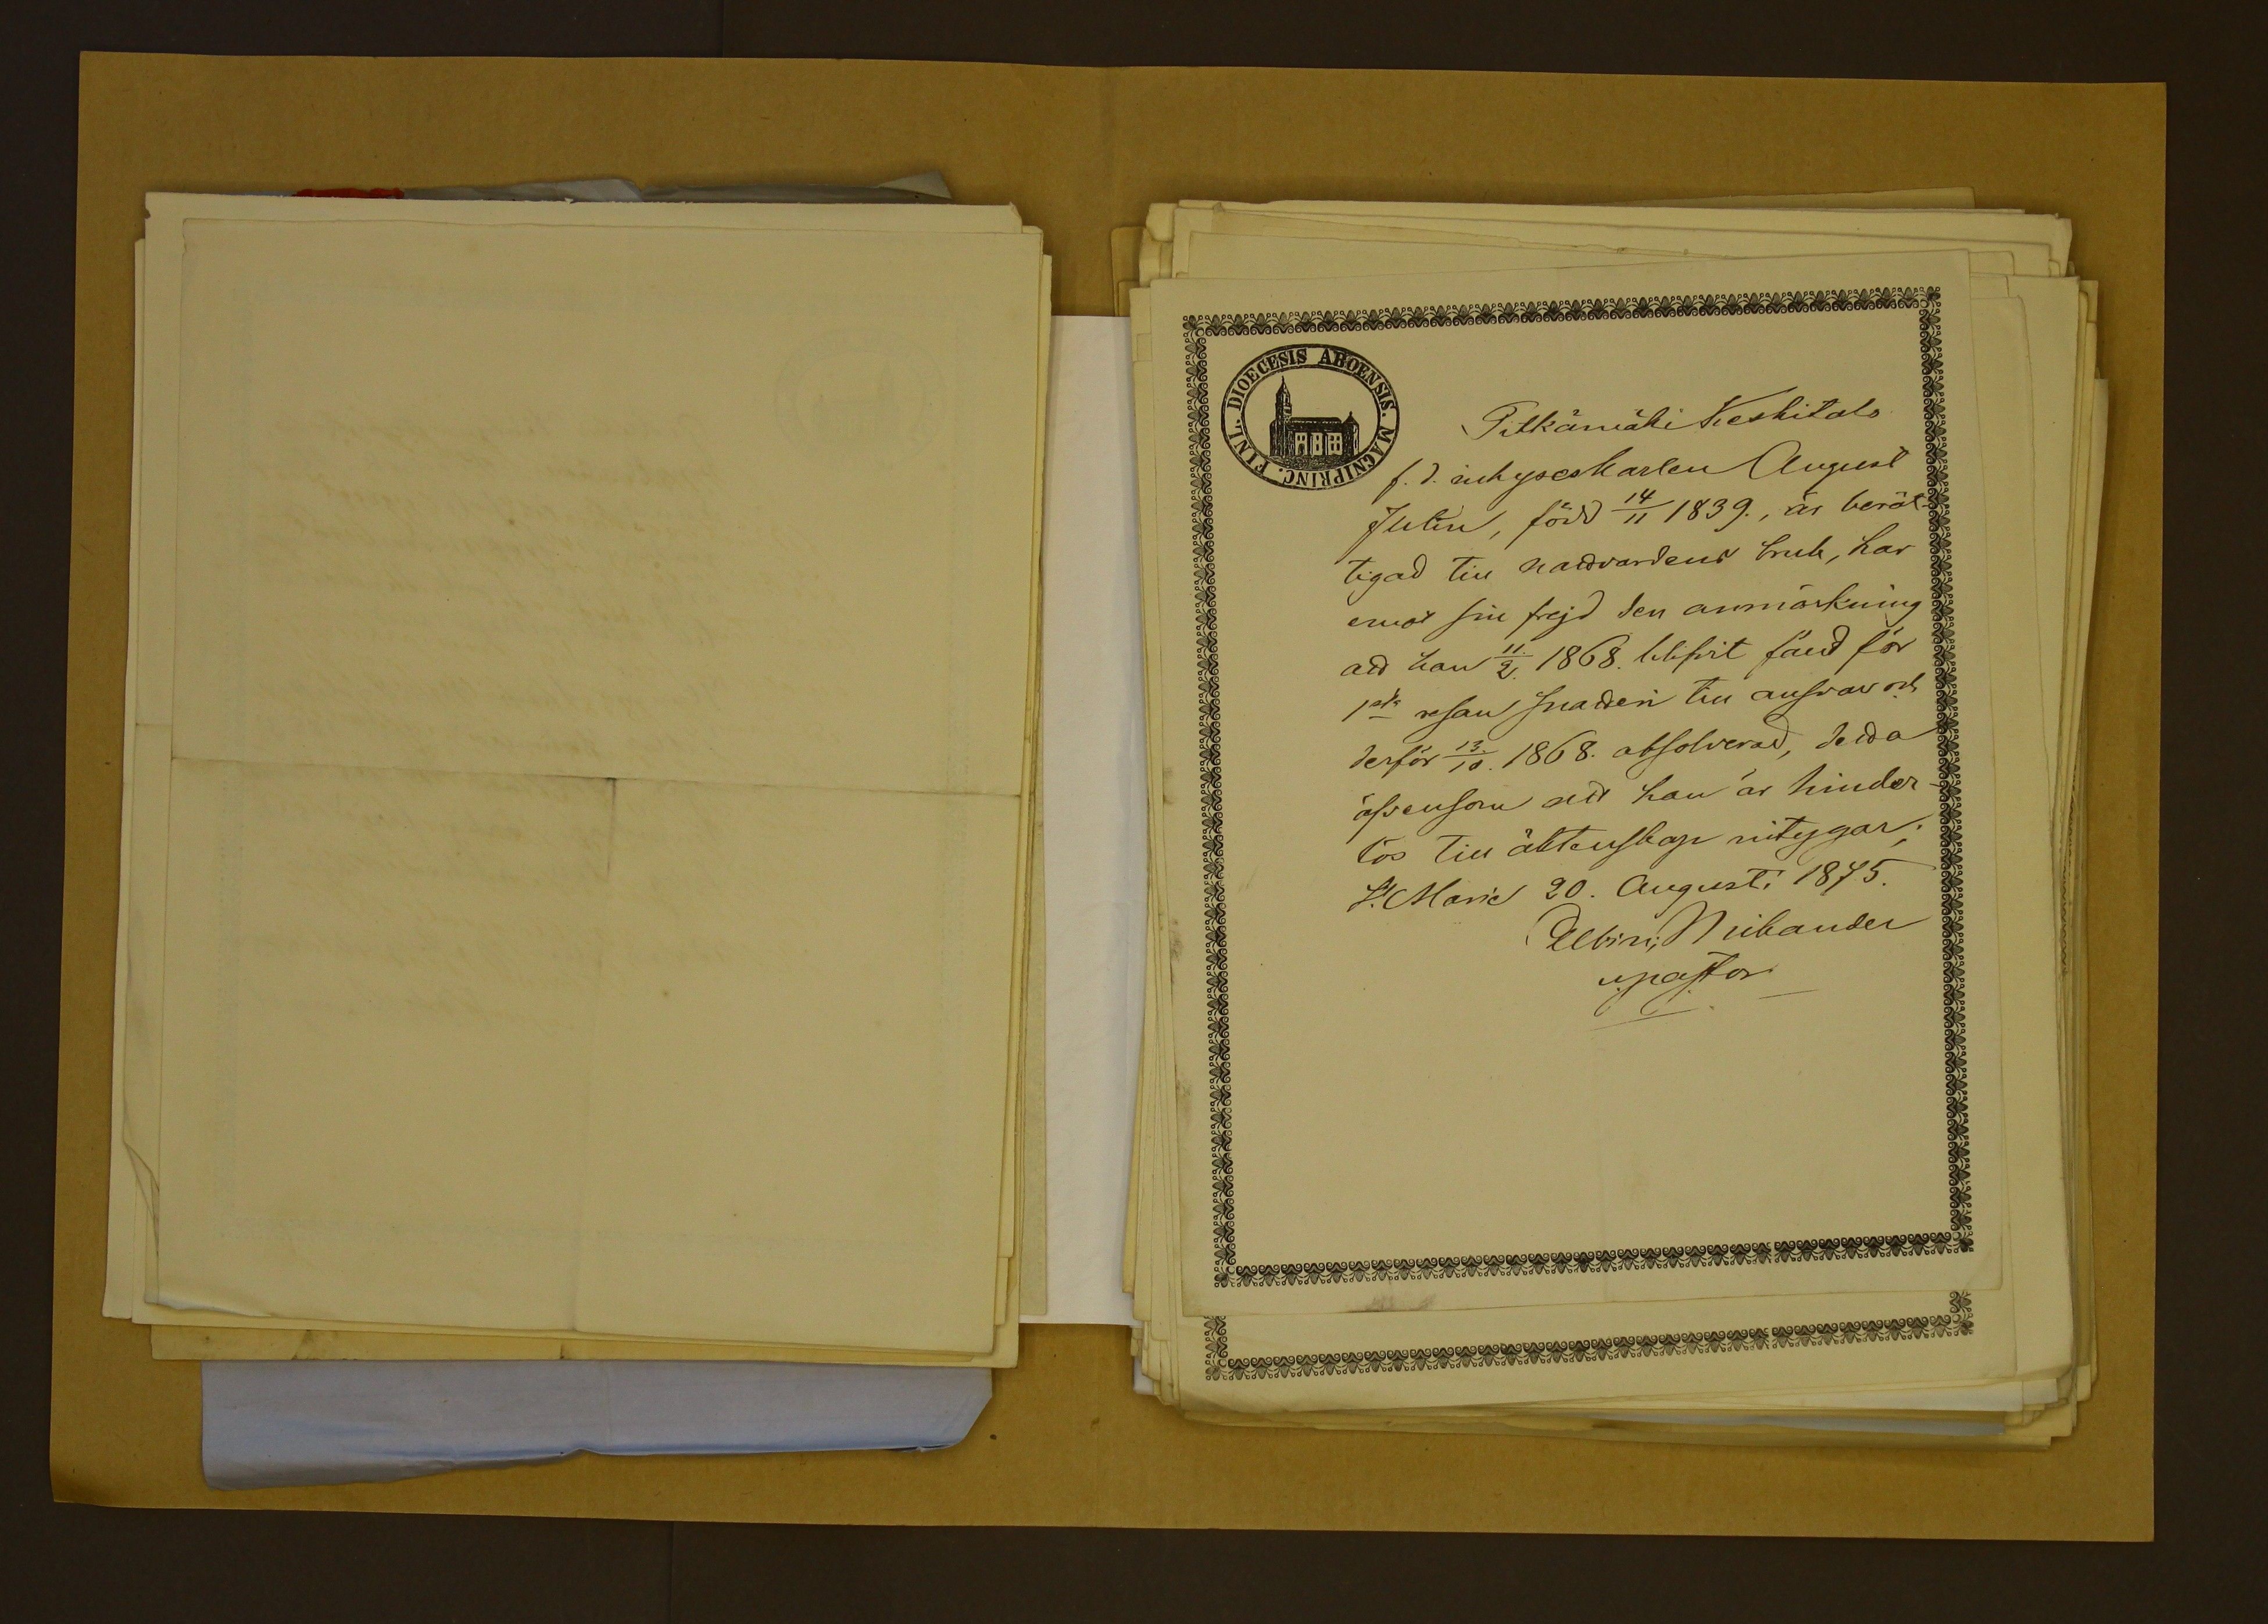 DIOECESIS ABOENSIS. MAGNI PRINC. FINL.
Pitkämäki Keskitalo
f. d. inhyseskarlen August
Julin, född 14/11 1839., är berät-
tigad till nattvardens bruk, har
emot sin frejd den anmärkning
att han 11/2. 1868. blifvit fäld för
1sta resan snatteri till ansvar och
derför 13/10. 1868. absolverad, detta
äfvensom att han är hinder-
lös till äktenskap intygar;
St. Marie 20. Augusti 1875.
Albin Nibander
v. pastor